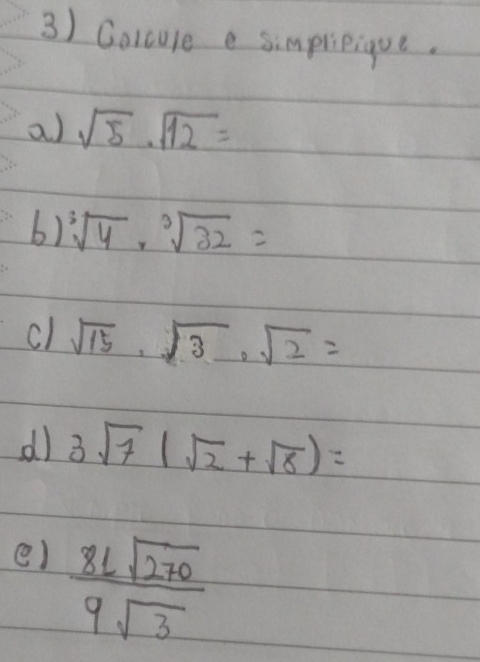 3) Calcule e simplifique.
a) √5 . √12 =
b) ³√4 . ³√32 =
c) √15 . √3 . √2 =
d) 3√7 (√2 + √8) =
e) 81√270
9√3